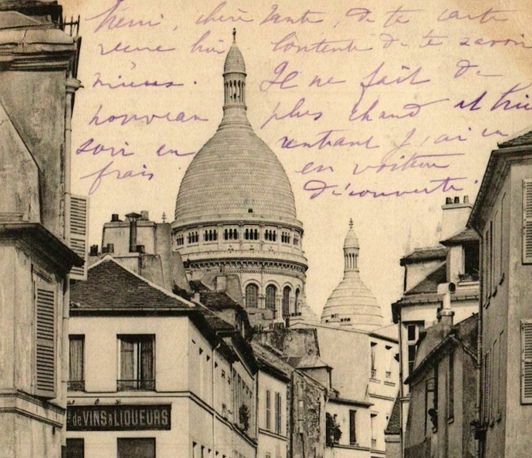 Merci, chère Tante, de ta carte
reçue hier. Contente de te savoir
mieux. Il ne fait de
nouveau plus chaud et hier
soir en rentrant j'ai eu
frais en voiture
découverte.
de VINS & LIQUEURS